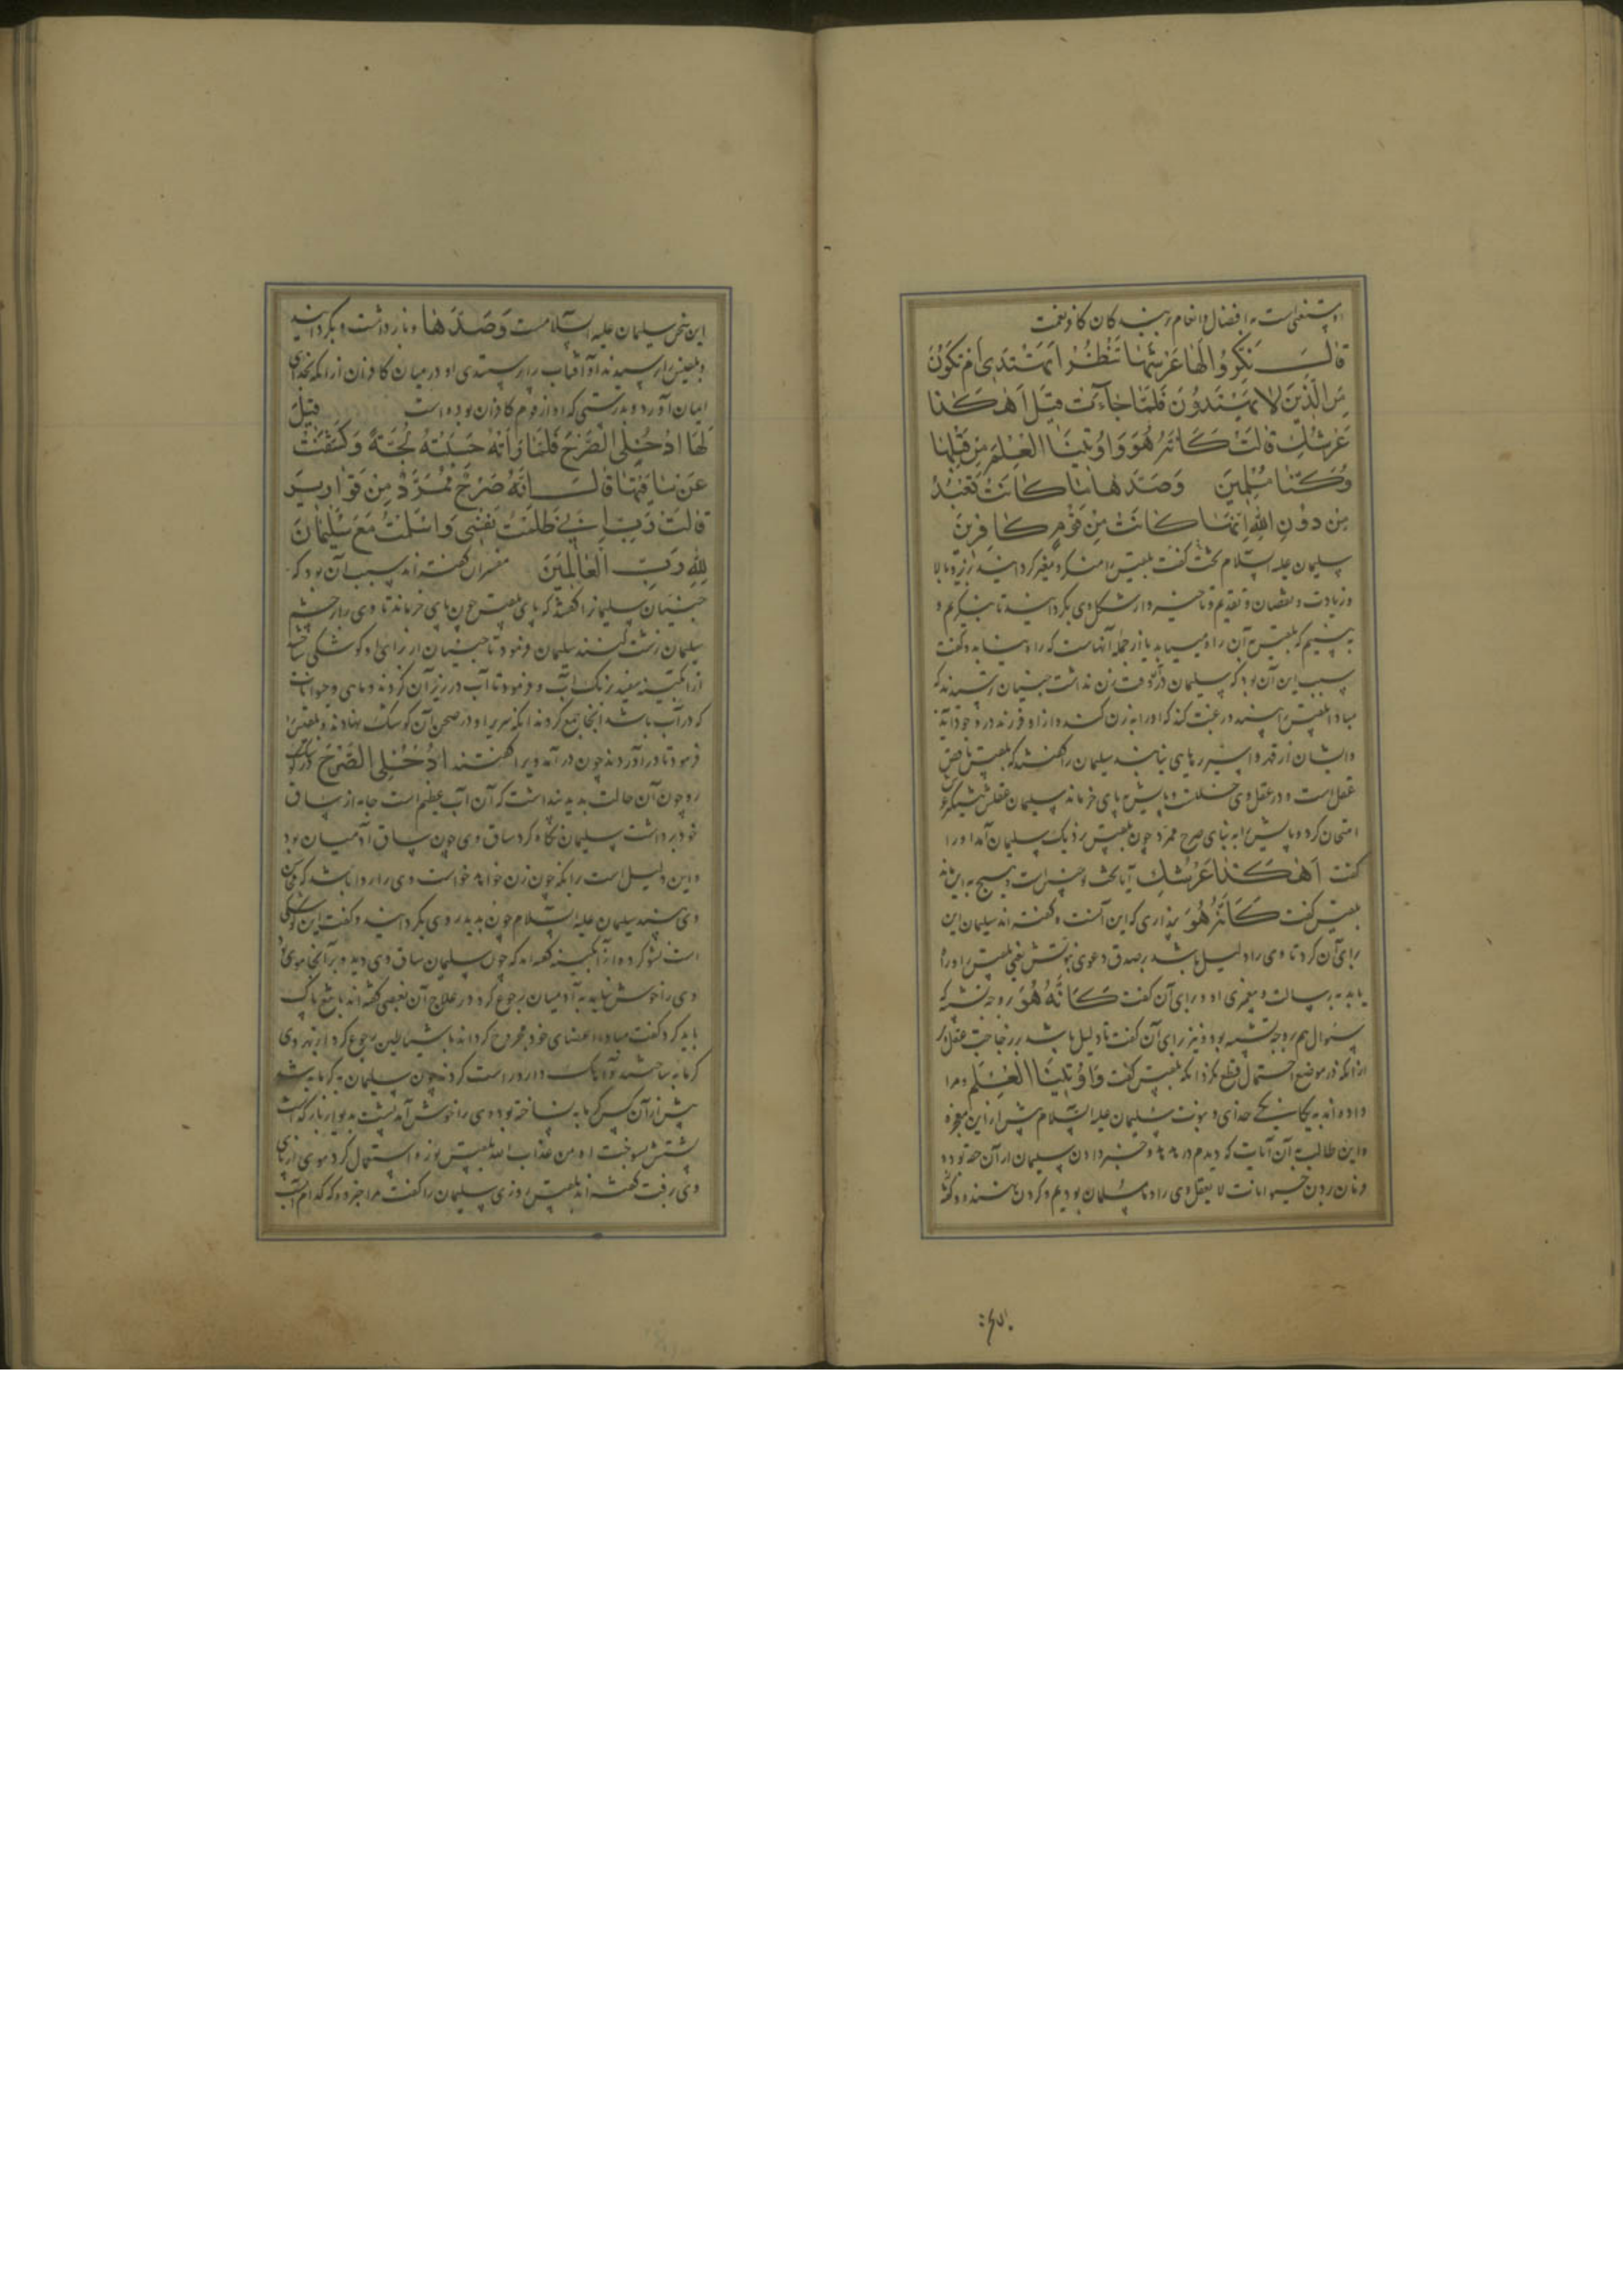 او مستغنی است به افضال و انعام بر بندگان کافر نعمت
قَالَ نَكِّرُوا لَهَا عَرْشَهَا نَنْظُرْ أَتَهْتَدِي أَمْ تَكُونُ
مِنَ الَّذِينَ لَا يَهْتَدُونَ فَلَمَّا جَاءَتْ قِيلَ أَهَكَذَا
عَرْشُكِ قَالَتْ كَأَنَّهُ هُوَ وَأُوتِينَا الْعِلْمَ مِنْ قَبْلِهَا
وَكُنَّا مُسْلِمِينَ وَصَدَّهَا مَا كَانَتْ تَعْبُدُ
مِنْ دُونِ اللَّهِ إِنَّهَا كَانَتْ مِنْ قَوْمٍ كَافِرِينَ
سلیمان علیه السلام تخت بلقیس را منکر و مغیر گردانید
و زیادت و نقصان و تقدیم و تاخیر و از شکل وی بگردانید تا بنگریم و
ببینیم که بلقیس بآن راه می‌یابد یا از جمله آنهاست که راه نیابد و گفت
سبب این آن بود که سلیمان در آن وقت زن نداشت جنیان ترسیدند که
مبادا بلقیس را ببیند و رغبت کند که او را به زن کند و از او فرزند در وجود آید
و ایشان از قهر و اسیر رهایی نیابند سلیمان را گفتند که بلقیس ناقص
عقل است و در عقل وی خللست و پایش به پای خر ماند سلیمان عقلش
امتحان کرد و پایش را به بنای صرح ممرد چون بلقیس نزدیک سلیمان آمد او را
گفت أَهَكَذَا عَرْشُكِ آیا تخت تو چنین است
بلقیس گفت كَأَنَّهُ هُوَ پنداری که این آنست و گفته‌اند سلیمان این
برای آن کرد تا وی را دلیل باشد بر صدق دعوی نبوتش یعنی بلقیس را و راه
یابد به رسالت و پیغمبری او و برای آن گفت كَأَنَّهُ هُوَ بر وجه تشبیه که
سؤال هم بر وجه تشبیه بود و نیز برای آن گفت تا دلیل باشد بر رجاحت عقل او
از آنکه در موضع احتمال قطع نکرد آنگه بلقیس گفت وَأُوتِينَا الْعِلْمَ و ما را
داده‌اند به یگانگی خدای و نبوت سلیمان علیه السلام پیش از این معجزه
و این طالب آن آیات که دیدم در هدهد و خبر دادن سلیمان از آن
این سخن سلیمان علیه السلامست وَصَدَّهَا و باز داشت و بگردانید
و بلقیس را پرسیدند او آفتاب را پرستیدی او در میان کافران از آنکه بخدای
ایمان آورد و بدرستی که او از قوم کافران بوده است قِيلَ
لَهَا ادْخُلِي الصَّرْحَ فَلَمَّا رَأَتْهُ حَسِبَتْهُ لُجَّةً وَكَشَفَتْ
عَنْ سَاقَيْهَا قَالَ إِنَّهُ صَرْحٌ مُمَرَّدٌ مِنْ قَوَارِيرَ
قَالَتْ رَبِّ إِنِّي ظَلَمْتُ نَفْسِي وَأَسْلَمْتُ مَعَ سُلَيْمَانَ
لِلَّهِ رَبِّ الْعَالَمِينَ مفسران گفته‌اند سبب آن بود که
جنیان سلیمانرا گفتند که پای بلقیس چون پای خر ماند تا وی را در چشم
سلیمان زشت کنند سلیمان فرمود تا جنیان از برای او کوشکی ساختند
از آبگینه سفید برنگ آب و فرمود تا آب در زیر آن کردند و ماهی و حیوانات
که در آب باشد آنجا جمع کردند آنگه سریر او در صحن آن کوشک بنهادند و بلقیس را
فرمود تا درآوردند چون درآمد ویرا گفتند ادْخُلِي الصَّرْحَ
رو چون آن حالت بدید پنداشت که آن آب عظیم است جامه از ساق
خود برداشت سلیمان نگاه کرد ساق وی چون ساق آدمیان بود
و این دلیل است برانکه چون زن خواهد خواست وی را روا باشد که
وی بیند سلیمان علیه السلام چون بدید روی بگردانید و گفت این کوشکی
است نسو کرده از آبگینه گفته‌اند که چون سلیمان ساق وی دید و بر آنجا موی بود
وی را خوش نیامد به آدمیان رجوع کرد در علاج آن بعضی گفته‌اند به تیغ پاک
باید کرد گفت مبادا اعضای خود مجروح گرداند با شیاطین رجوع کرد از بهر وی
گرمابه ساختند و آهک و دارو راست کردند چون سلیمان به گرمابه شد
پیش از آن کس گرمابه نساخته بود وی را خوش آمد پشت به دیوار باز
پشتش بسوخت اوه من عذاب الله بلقیس نوره استعمال کرد موی از پای
وی رفت گفته‌اند بلقیس روزی سلیمان را گفت مرا خبر ده که کدام آب